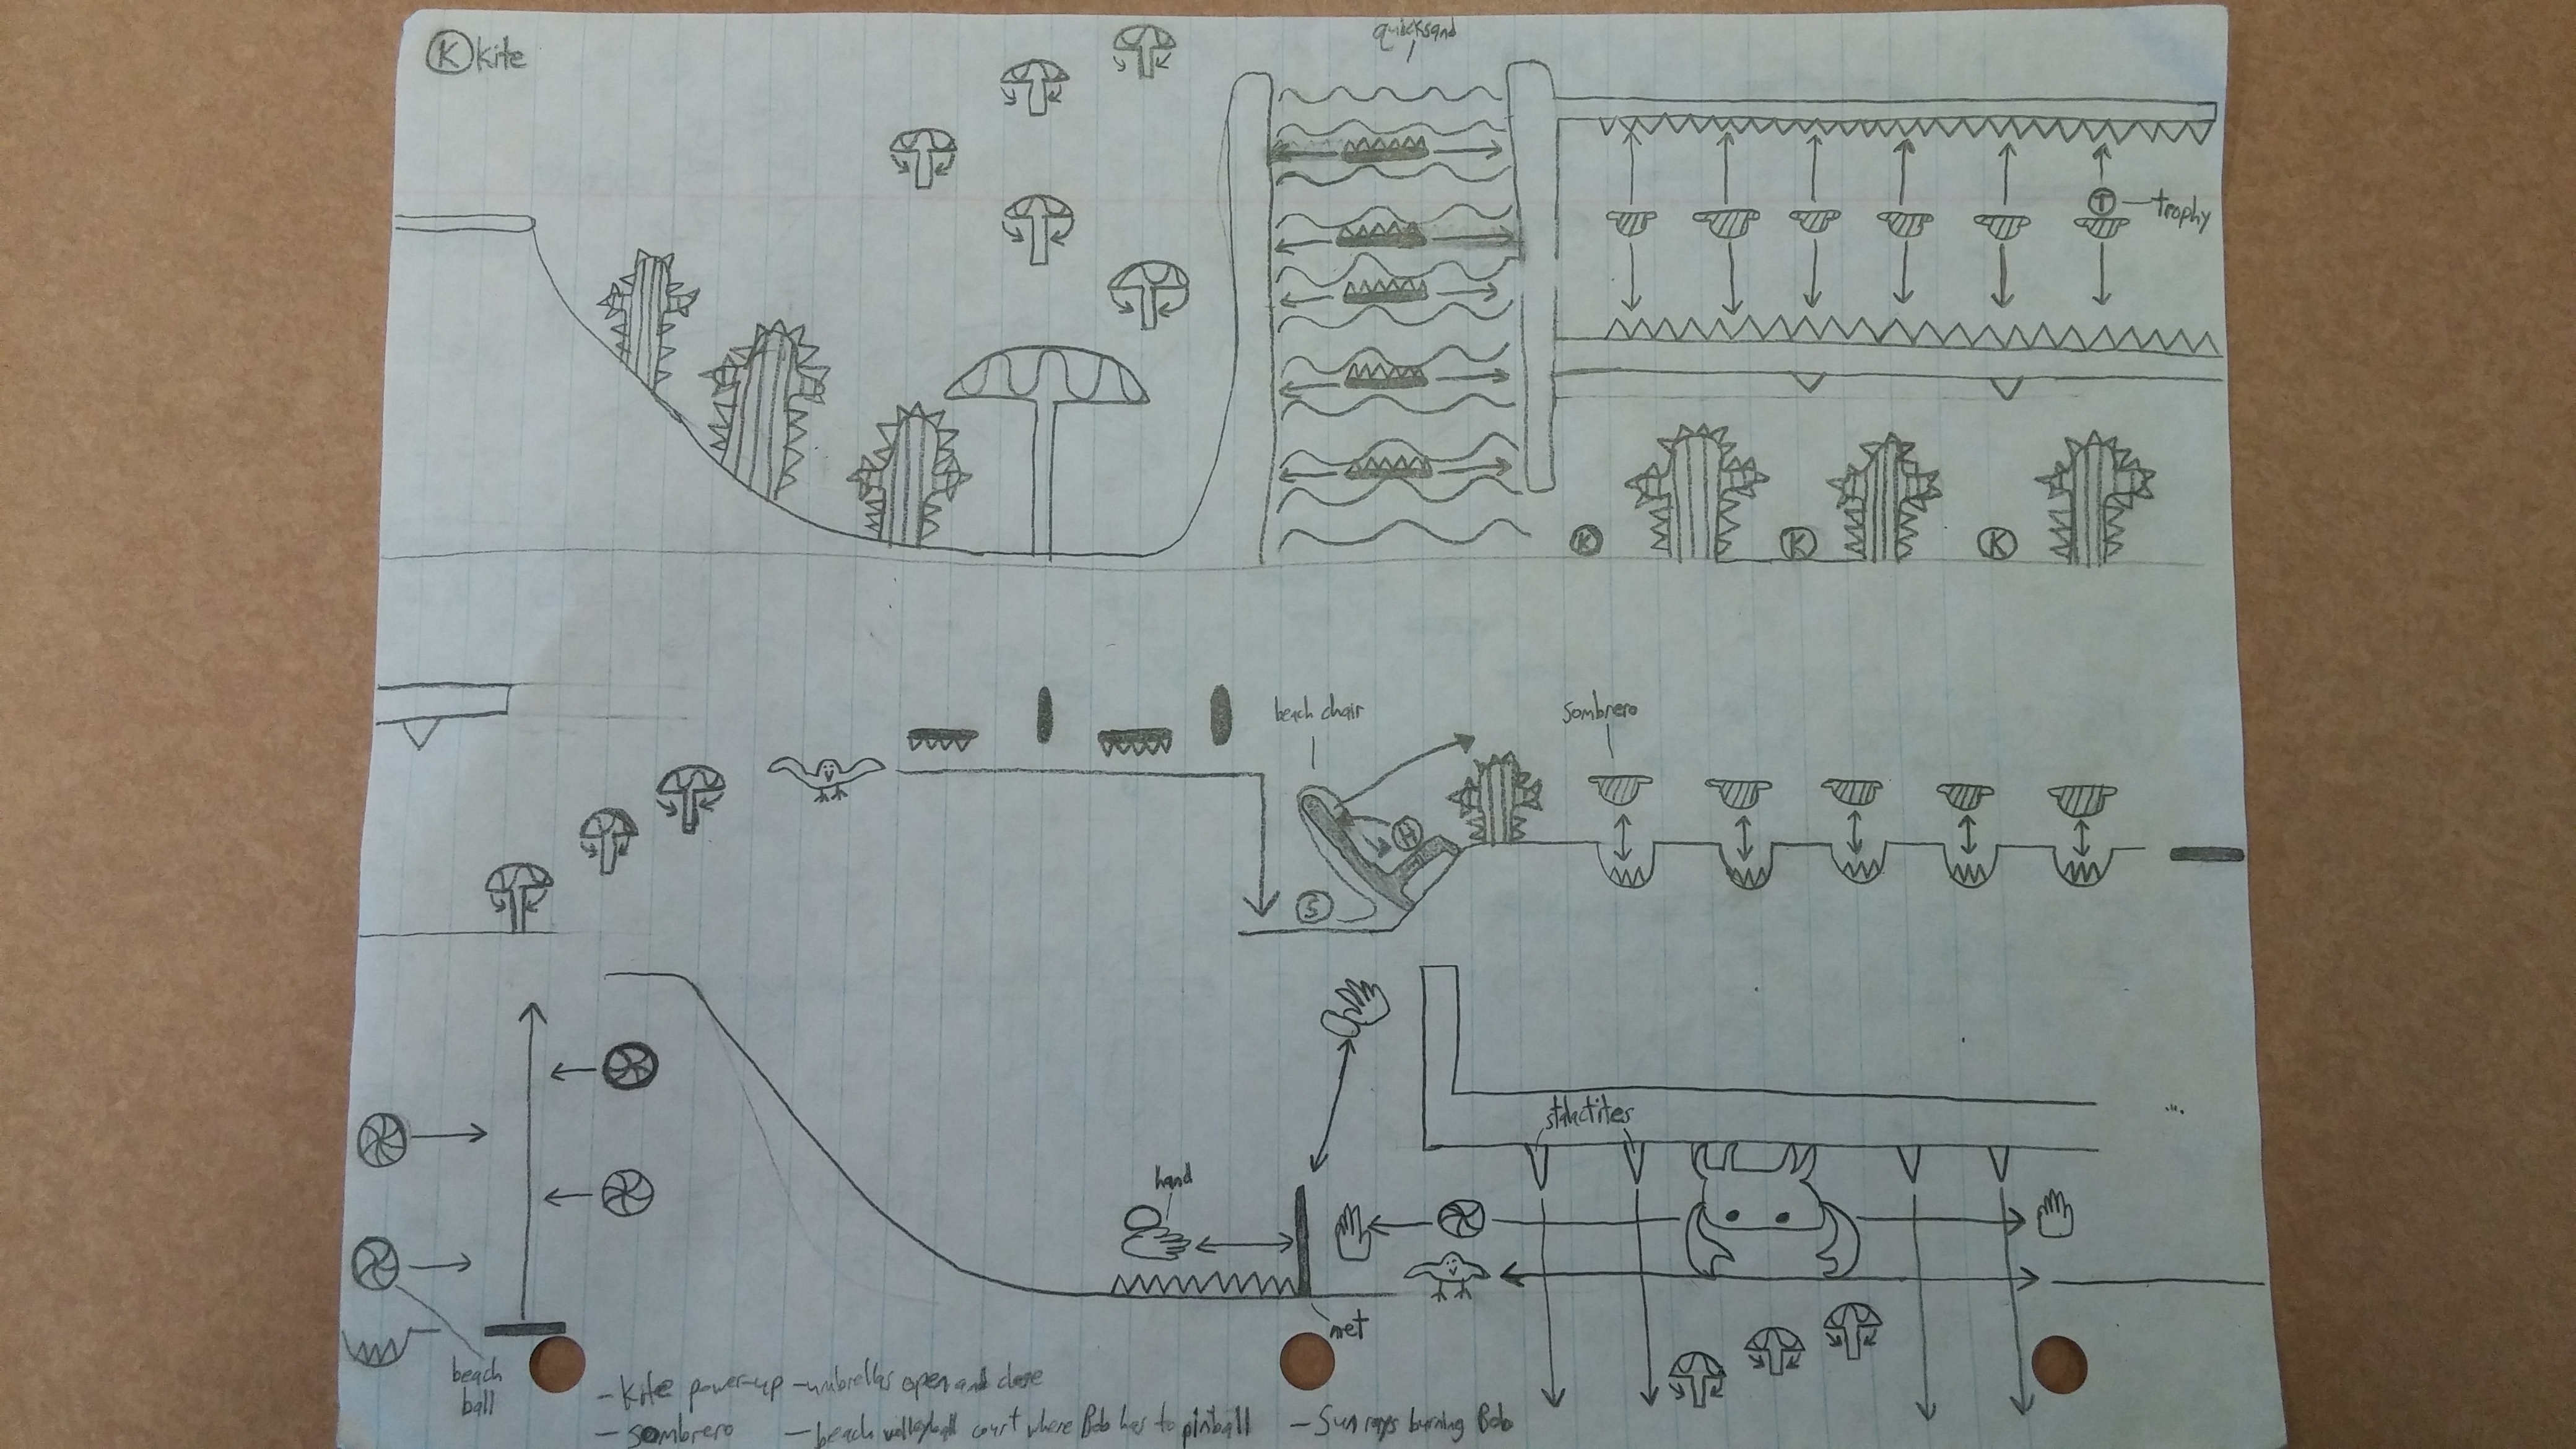 K kite
quicksand
T trophy
K K K
beach chair
sombrero
H
S
stalactites
hand
net
beach
ball
- Kite power-up - umbrellas open and close
- sombrero - beach volleyball court where Bob has to pinball - Sun rays burning Bob